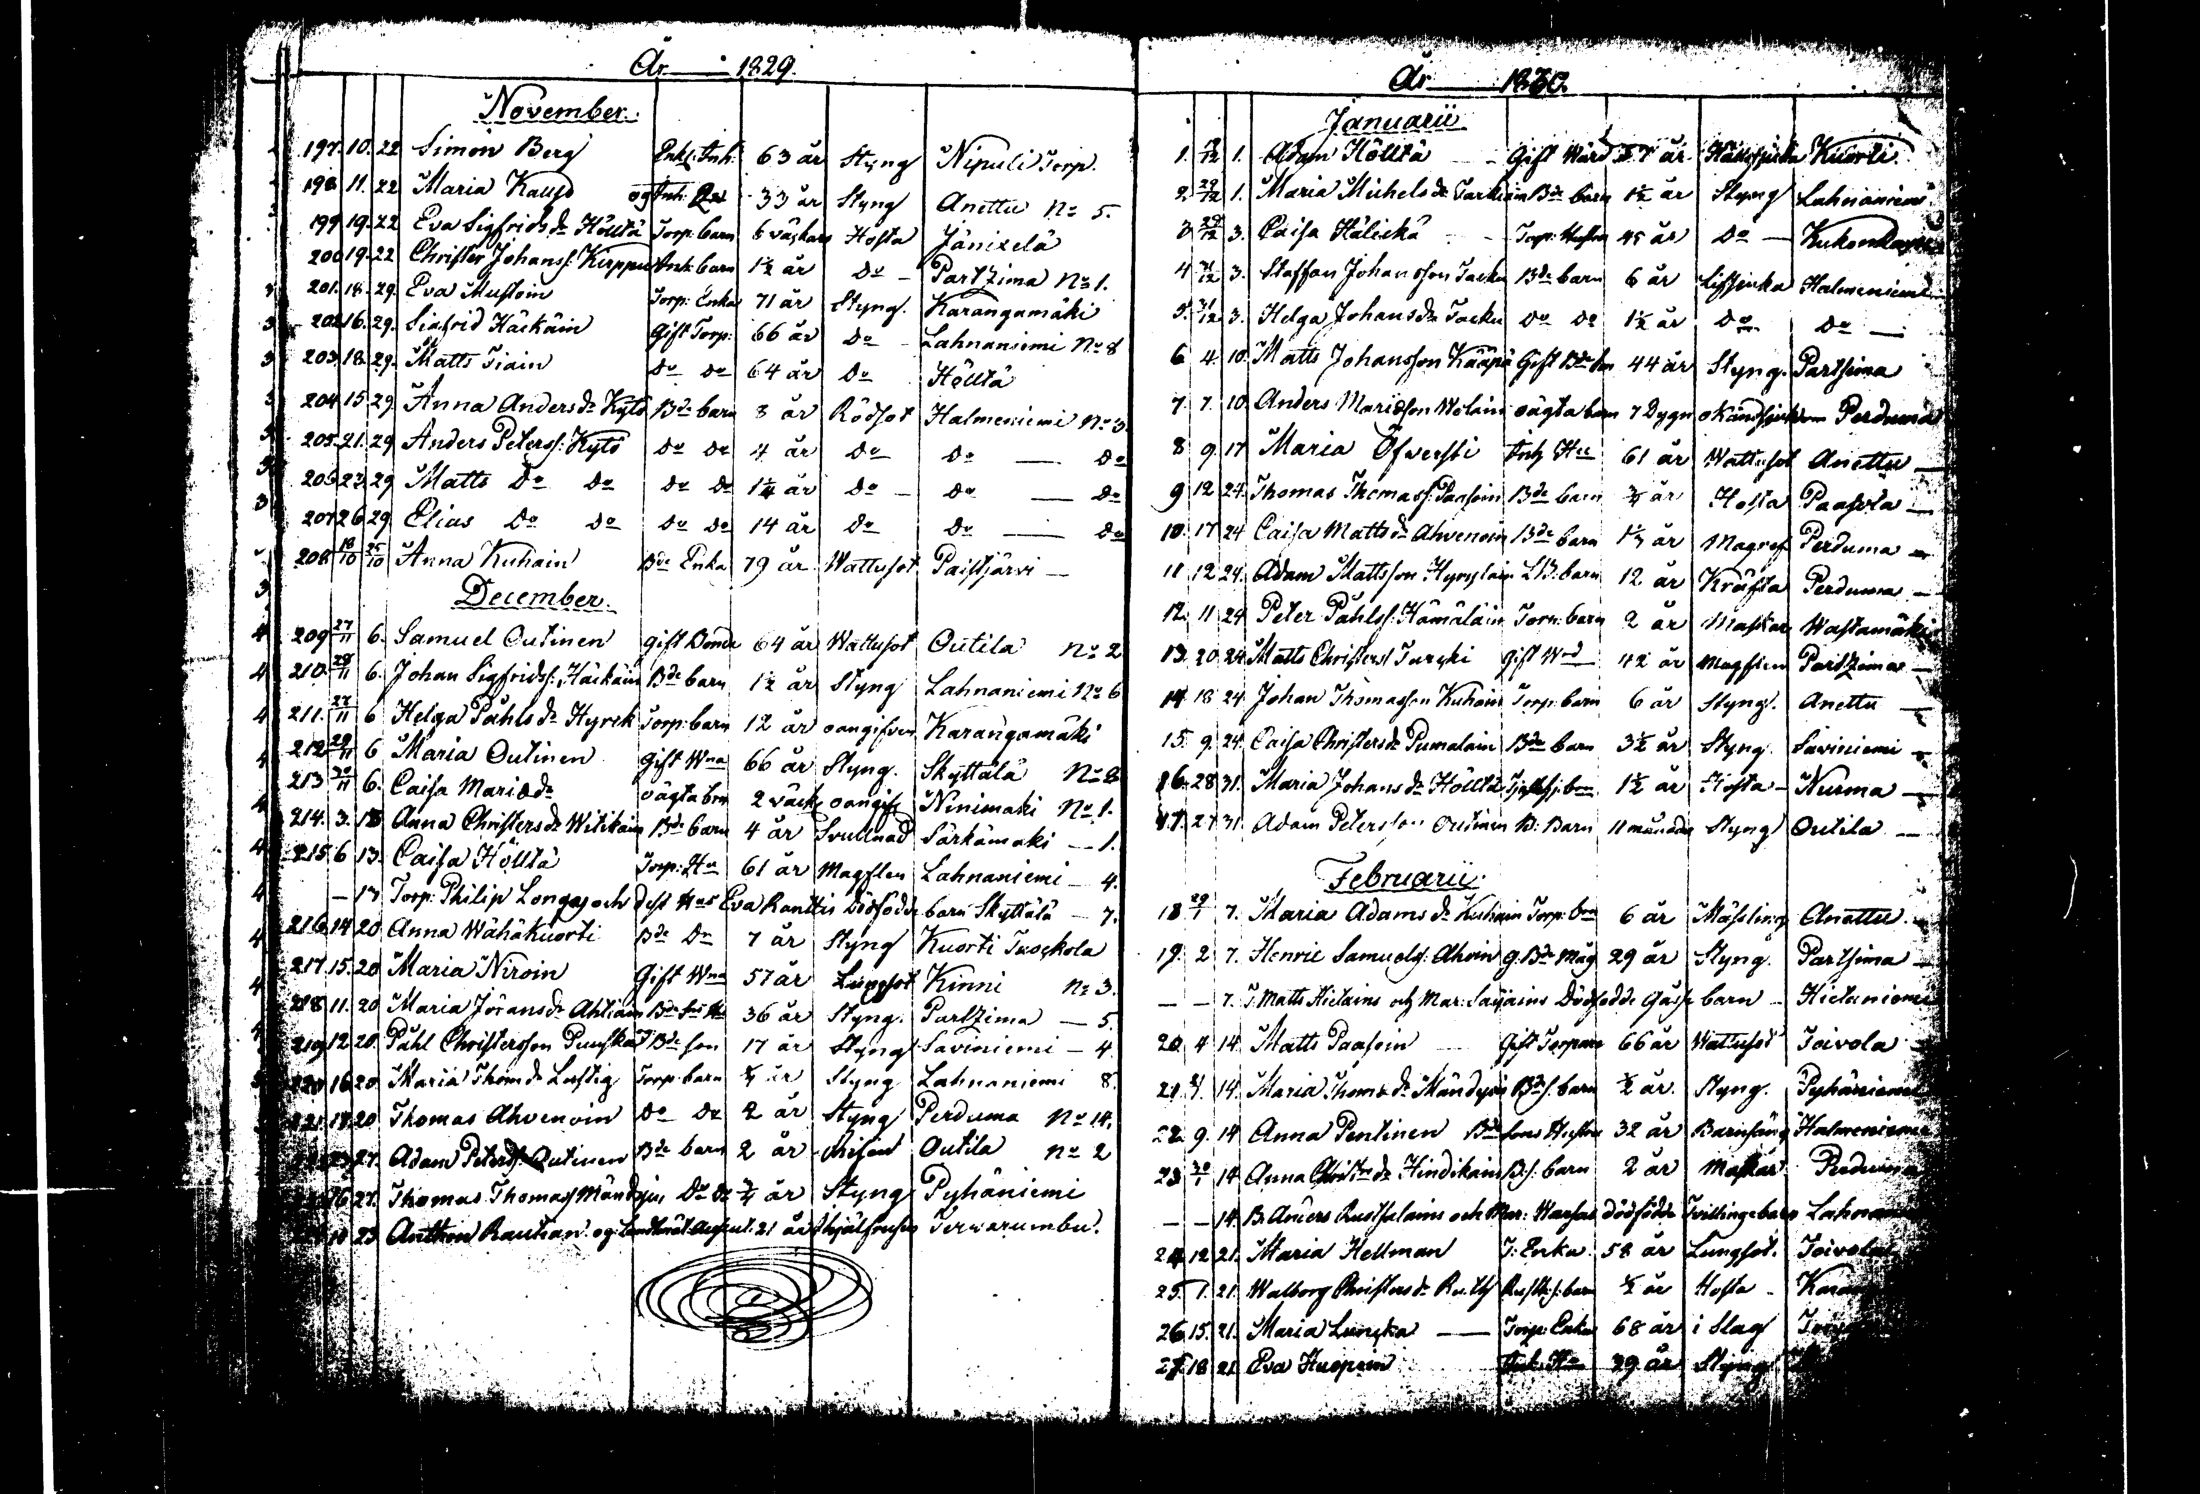 År 1829.
November.
197. 10. 22 Simon Berg Enkl. Inh. 63 år Styng Nipuli Torp.
198 11. 22 Maria Kaup 33 år Styng Anettu No 5.
199 19. 22 Eva Sigfrids dr Hölltä Torp. barn 6 väckors Hosta Jäniselä
200 19. 22 Christer Johanss. Kirppu Inh. barn 1½ år Do Partzima No 1.
201. 18. 29. Eva Mustoin Torp. Enka 71 år Styng. Karangamäki
202 16. 29. Sigfrid Häckäin Gift Torp. 66 år Do Lahnaniemi No 8
203 18. 29. Matts Tiain Do Do 64 år Do Hölltä
204 15 29 Anna Anders dr Kytö Bde barn 8 år Rödsot Halmeniemi No 3.
205. 21. 29 Anders Peterss. Kytö Do Do 4 år Do Do Do
206 23 29 Matts Do Do Do Do 1¼ år Do Do Do
207 26 29 Elias Do Do Do Do 14 år Do Do Do
208 18/10 25/10 Anna Kuhain Bde Enka 79 år Wattusot Paistjärvi
December.
209 27/11 6. Samuel Outinen gift Bonde 64 år Wattusot Outila No 2
210. 28/11 6. Johan Sigfridss. Häckäin Bde barn 1½ år Styng Lahnaniemi No 6
211. 27/11 6 Helga Påhls dr Hyrck Torp. barn 12 år oangifven Karangamäki
212 29/11 6 Maria Outinen gift Wna 66 år Styng. Skyttälä No 8
213 30/11 6. Caisa Mariæ dr oägta brn 2 väck. oangif. Ninimäki No 1.
214. 3. 13 Anna Christers dr Witikain Bde barn 4 år Svullnad Särkämäki 1.
215 6 13. Caisa Hölltä Torp. Hu 61 år Magplen Lahnaniemi 4.
13 Torp. Philip Longas och dess Hus Eva Ranttis Dödfödde barn Skyttälä 7.
216 14 20 Anna Wähäkuorti Bde Dr 7 år Styng Kuorti Tuockola
217. 15. 20 Maria Niroin Gift Wna 57 år Lungsot Kinni No 3.
218 11. 20 Maria Jörans dr Ahtiain 36 år Styng. Partzima 5.
219 12 20. Påhl Christersson Punska Bde son 17 år Styng Saviniemi 4
220 16 20 Maria Thom. dr Lustig Torp. barn ¾ år Styng Lahnaniemi 8.
221 18 20 Thomas Ahvenoin Do Do 2 år Styng Perduma No 14.
27. Adam Peterss. Outinen Bde barn 2 år Outila No 2
27. Thomas Thomass Mändyin Do Do ¾ år Styng Pyhäniemi
23 Antton Rautian 21 år Terwarumbu.
År 1830.
Januarii
1. 1. Adam Hölltä Gift Wärd 57 år Kuorti
2. 29/12 1. Maria Michels dr Tarkiain Bde barn 1½ år Styng Lahnaniemi
3 29/12 3. Caisa Hälickä Torp. Hustru 45 år Do
4 31/12 3. Staffan Johansson Tacku Bde barn 6 år Halmeniemi
5. 31/12. 3. Helga Johans dr Tacku Do Do 1½ år Do Do
6 4. 10. Matts Johansson Kääpä Gift Bde son 44 år Styng. Partsima
7. 7. 10. Anders Mariæson Wolain oägta barn 7 Dygn okänd sjukdom Perduma
8 9 17 Maria Öfwerski Inh. Hu 61 år Wattusot Anettu
9 12 24. Thomas Thomass. Paasoin Bde barn ¾ år Hosta Paasola
10. 17 24 Caisa Matts dr Ahvenoin Bde barn år Magref Perduma
11 12 24. Adam Mattsson Hynylain barn 12 år Kräfta Perduma
12. 11 24 Peter Påhlss. Hämäläin Torp. barn 2 år Maskar Wastamäki
13. 20. 24 Matts Christerss Turcki gift Wrd 42 år Magplen Partzima
14 18 24 Johan Thomasson Kuhain Torp. barn 6 år Styng. Anettu
15. 9. 24. Caisa Christers dr Pumalain Bde barn 3½ år Styng. Saviniemi
16. 28 31. Maria Johans dr Hölltä 1½ år Hosta Nurma
17. 27 31. Adam Petersson Outinen B: Barn 11 månader Styng Outila
Februarii
18 29/1 7. Maria Adams dr Kuhain Torp. brn 6 år Mässling Anettu
19. 2 7. Henric Samuelss. Ahoin g. Bde Måg 29 år Styng. Partsima
7. T. Matts Hietains och Mar: Saijains Dödfödde Gåsse barn Hietaniemi
20. 4 14. Matts Paasoin Gift Torpare 66 år Wattusot Toivola
21. 14. Maria Thom. dr Mändyin barn ½ år. Styng. Pyhäniemi
22. 9. 14 Anna Pentinen Bde sons Hustru 32 år Barnsäng Halmeniemi
23 30/1 14 Anna Christ. dr Hindikain barn 2 år Maskar Perduma
14. B. Anders Rustsalains och Mar: dödfödde Tvillinge barn
24 12 21. Maria Hellman T: Enka. 58 år Lungsot. Toivola
25. 1. 21. Walborg Christers dr ½ år Hosta
26. 15. 21. Maria Luncka Torp. Enka 68 år i Slag
27 18 21 Eva Huopain 39 år Styng